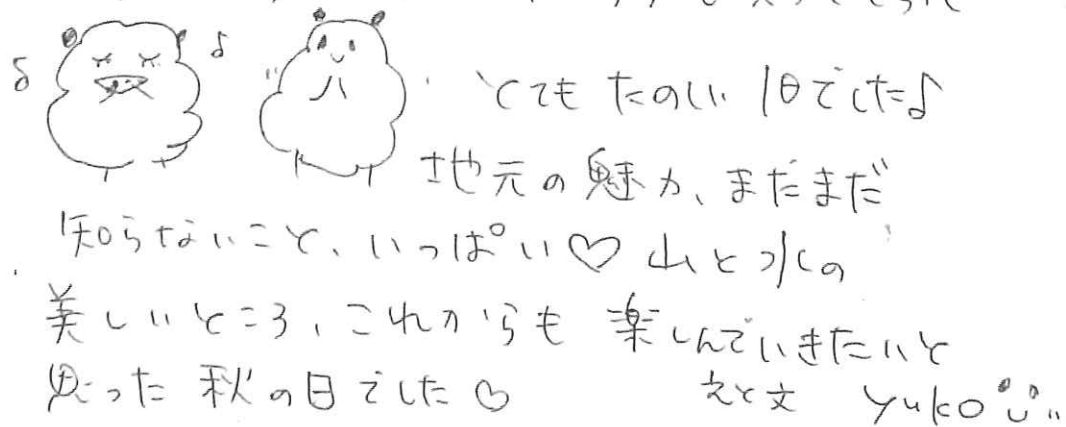 とてもたのしい1日でした♪
地元の魅力、まだまだ
知らないこと、いっぱい♡ 山と水の
美しいところ、これからも 楽しんでいきたいと
思った 秋の日でした♡ えと文 yuko